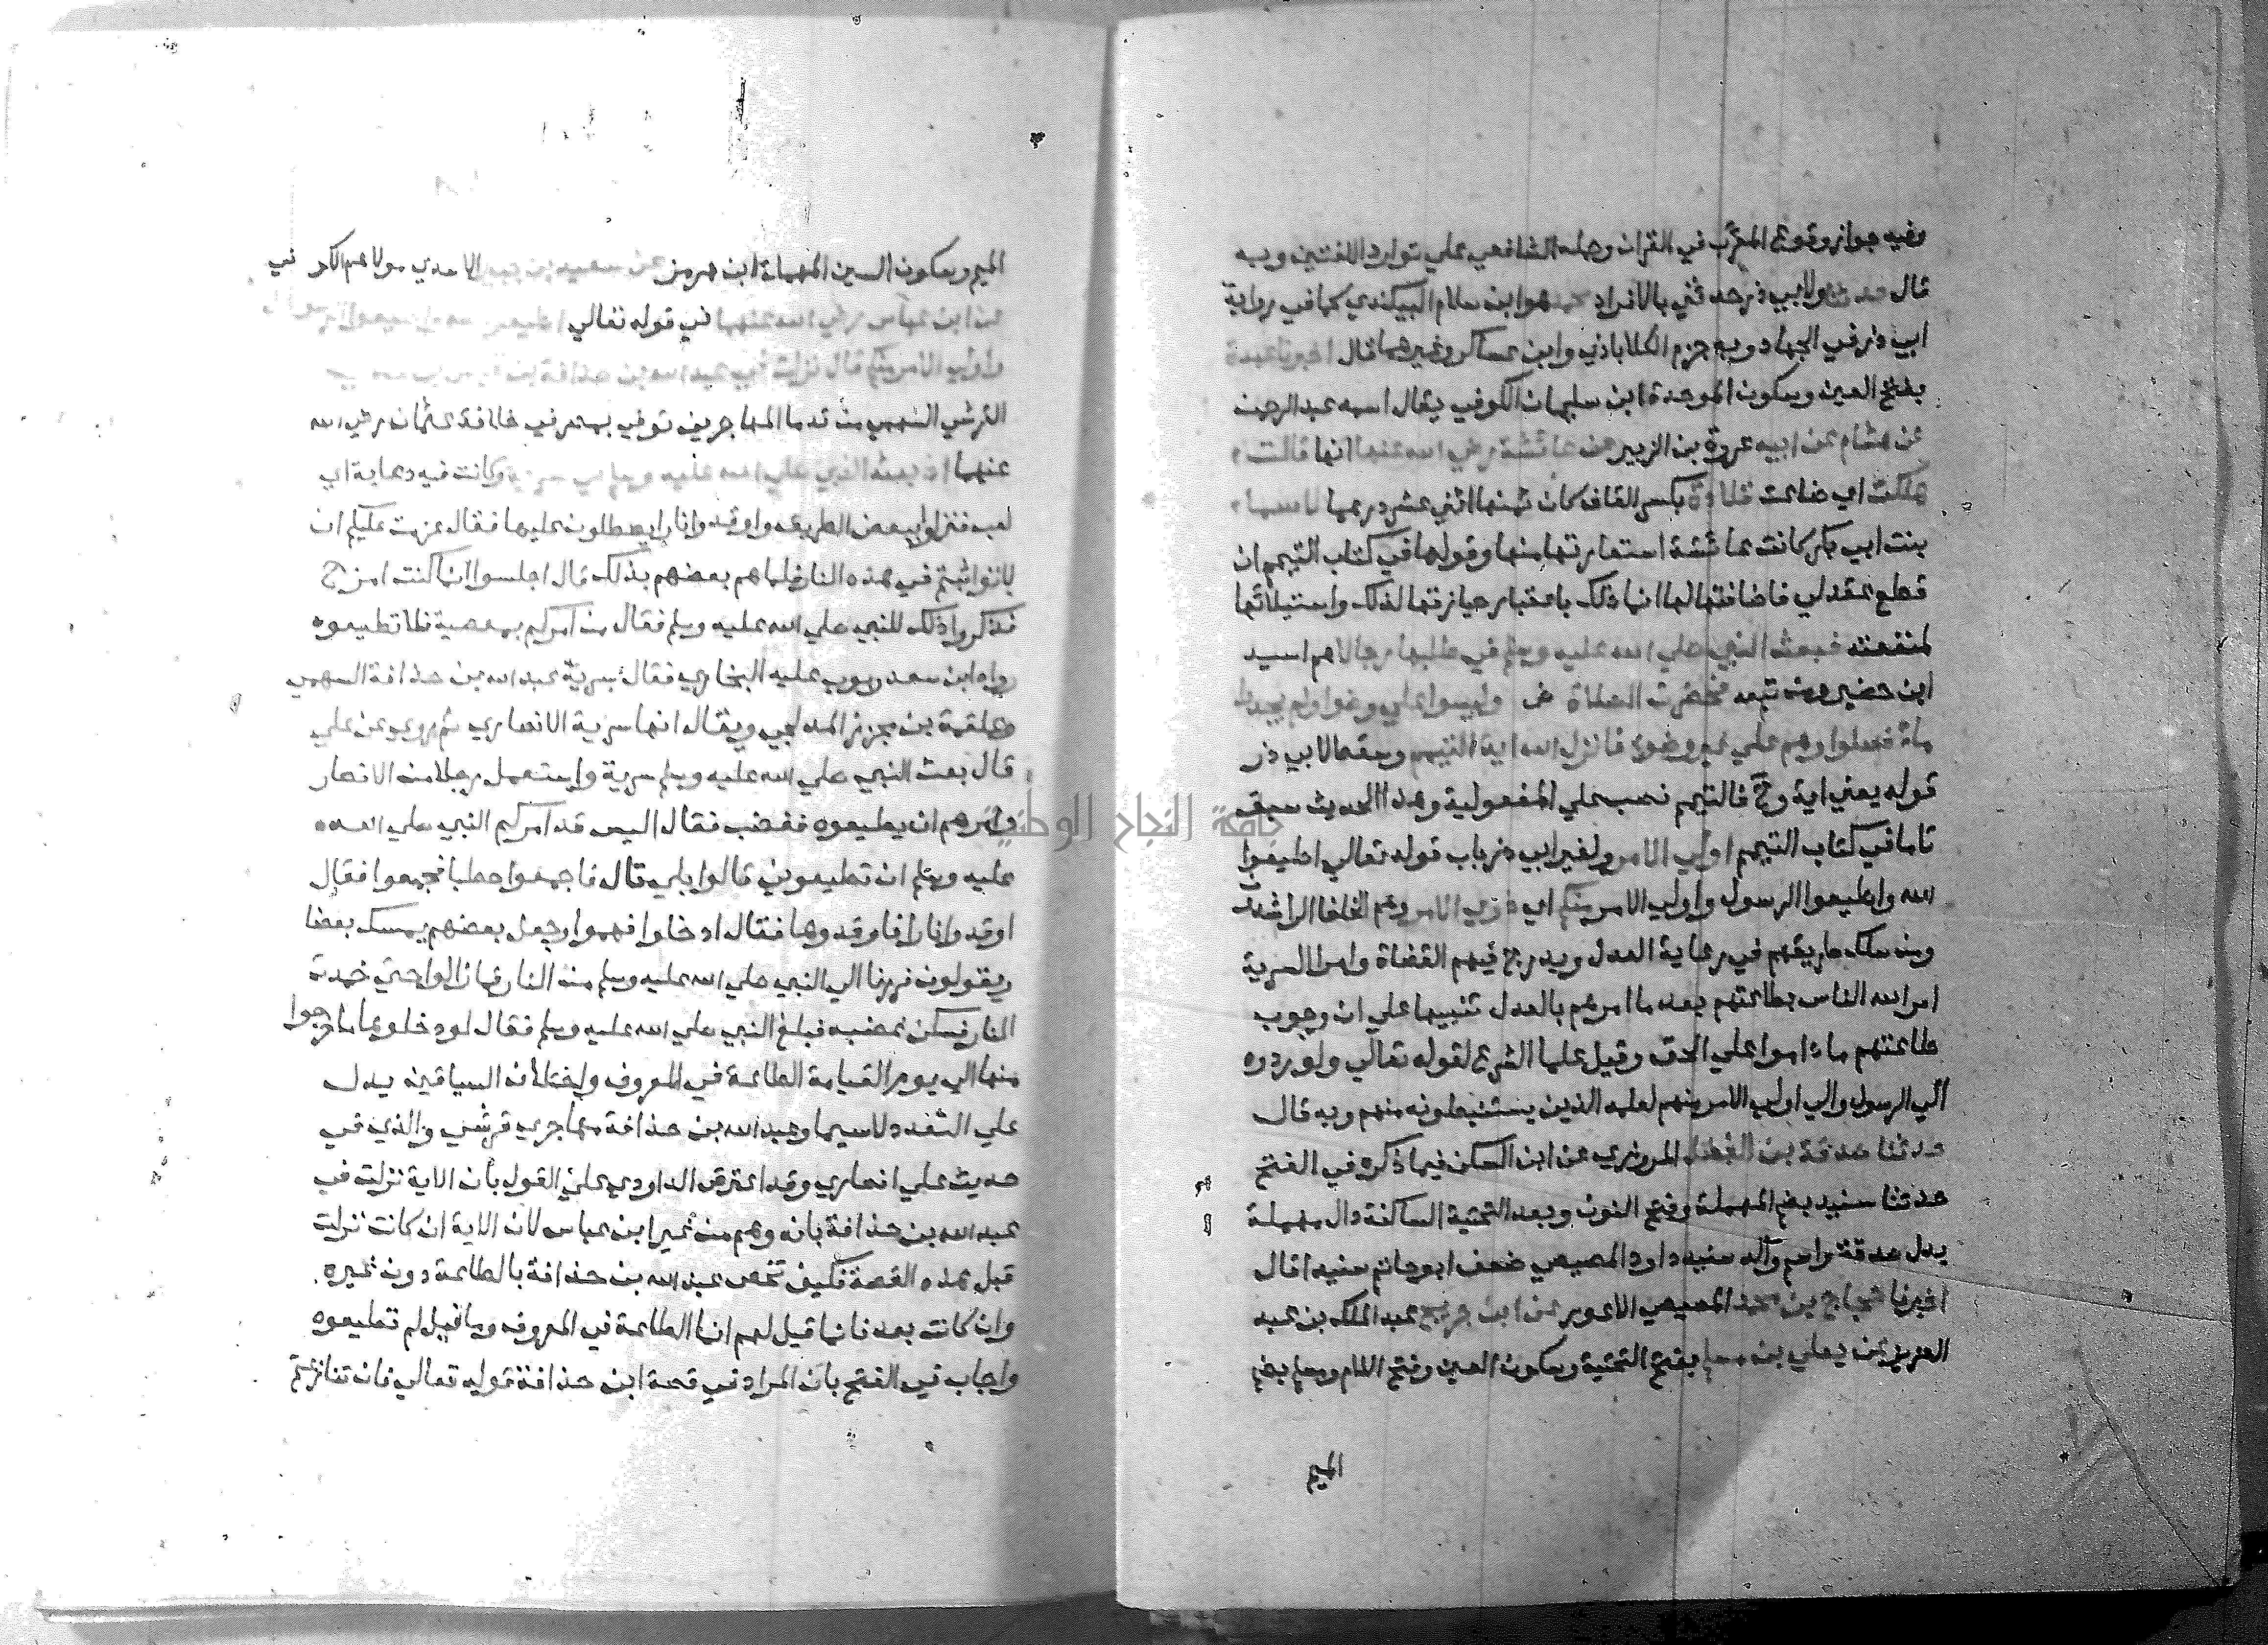 وفيه جواز وقوع المعرب في القران وحمله الشافعي علي توارد اللغتين وبه
قال حدثنا ولابي ذر حدثني بالافراد محمد هو ابن سلام البيكندي كما في رواية
ابي ذر في الجهاد وبه جزم الكلاباذي وابن عساكر وغيرهما قال اخبرنا عبدة
بفتح العين وسكون الموحدة ابن سليمان الكوفي يقال اسمه عبد الرحمن
عن هشام عن ابيه عروة بن الزبير عن عائشة رضي الله عنها انها قالت
هلكت اي ضاعت قلادة بكسر القاف كان ثمنها اثني عشر درهما لاسما
بنت ابي بكر كانت عائشة استعارتها منها وقولها في كتاب التيمم ان
قطع عقد لي فاضافتها لها انما ذلك باعتبار حيازتها لذلك واستيلائها
لمنفعته فبعث النبي صلي الله عليه وسلم في طلبها رجالا هم اسيد
ابن حضير ومن تبعه فحضرت الصلاة وليسوا علي وضوا ولم يجدوا
ماء فصلوا وهم علي غير وضوء فانزل الله اية التيمم وسقط لابي ذر
قوله يعني اية وح فالتيمم نصب علي المفعولية وهذا الحديث سبق
تاما في كتاب التيمم اولي الامر ولغير ابي ذر باب قوله تعالي اطيعوا
الله واطيعوا الرسول واولي الامر منكم اي ذوي الامر وهم الخلفا الراشدون
ومن سلك طريقهم في رعاية العدل ويدرج فيهم القضاة وامرا السرية
امر الله الناس بطاعتهم بعد ما امرهم بالعدل تنبيها علي ان وجوب
طاعتهم ما داموا علي الحق وقيل علما الشرع لقوله تعالي ولو ردوه
الي الرسول والي اولي الامر منهم لعلمه الذين يستنبطونه منهم وبه قال
حدثنا صدقة بن الفضل المروزي عن ابن السكن فيما ذكره في الفتح
حدثنا سنيد بضم المهملة وفتح النون وبعد التحتية الساكنة دال مهملة
بدل صدقة واسم والد سنيد داود المصيصي ضعف ابو حاتم سنيدا قال
اخبرنا حجاج بن محمد المصيصي الاعور عن ابن جريج عبد الملك بن عبد
العزيز عن يعلي بن مسلم بفتح التحتية وسكون العين وفتح اللام ومسلم بضم
الميم
الميم وسكون السين المهملة ابن هرمز عن سعيد بن جبير الاسدي مولاهم الكوفي
عن ابن عباس رضي الله عنهما في قوله تعالي اطيعوا الله واطيعوا الرسول
واولي الامر منكم قال نزلت في عبد الله بن حذافة بن قيس بن عدي
القرشي السهمي من قدما المهاجرين توفي بمصر في خلافة عثمان رضي الله
عنهما اذ بعثه النبي صلي الله عليه وسلم في سرية وكانت فيه دعابة اي
لعب فنزلوا ببعض الطريق واوقدوا نارا يصطلون عليها فقال عزمت عليكم ان
لا تواثبتم في هذه النار فلما هم بعضهم بذلك قال اجلسوا انما كنت امزح
فذكروا ذلك للنبي صلي الله عليه وسلم فقال من امركم بمعصية فلا تطيعوه
رواه ابن سعد وبوب عليه البخاري فقال سرية عبد الله بن حذافة السهمي
وعلقمة بن مجزز المدلجي ويقال انها سرية الانصاري ثم روي عن علي
قال بعث النبي صلي الله عليه وسلم سرية واستعمل رجلا من الانصار
وامرهم ان يطيعوه فغضب فقال اليس قد امركم النبي صلي الله
عليه وسلم ان تطيعوني قالوا بلي قال فاجمعوا حطبا فجمعوا فقال
اوقدوا نارا فاوقدوها فقال ادخلوا فهموا وجعل بعضهم يمسك بعضا
ويقولون فررنا الي النبي صلي الله عليه وسلم من النار فما زالوا حتي خمدت
النار فسكن غضبه فبلغ النبي صلي الله عليه وسلم فقال لو دخلوها ما خرجوا
منها الي يوم القيامة الطاعة في المعروف واختلاف السياقين يدل
علي التعدد لاسيما وعبد الله بن حذافة مهاجري قرشي والذي في
حديث علي انصاري وقد اعترض الداودي علي القول بان الاية نزلت في
عبد الله بن حذافة بانه وهم من غير ابن عباس لان الاية ان كانت نزلت
قبل هذه القصة فكيف تخص عبد الله بن حذافة بالطاعة دون غيره
وان كانت بعد فانما قيل لهم انما الطاعة في المعروف وما قيل لم لم تطيعوه
واجاب في الفتح بان المراد في قصة ابن حذافة قوله تعالي فان تنازعتم
جامعة النجاح الوطنية